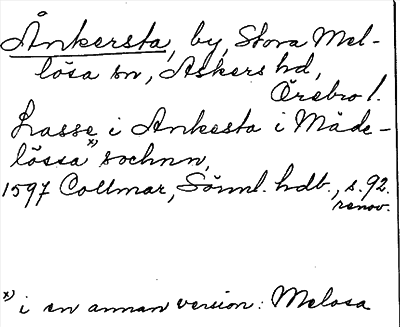 Ånkersta, by, Stora Mel-
lösa sn, Askers hd,
Örebro l.
Lasse i Ankesta i Måde-
lössa x) sochnn,
1597 Collmar, Sönnl. hdb., s. 92.
renov.
x) i en annan version: Melosa